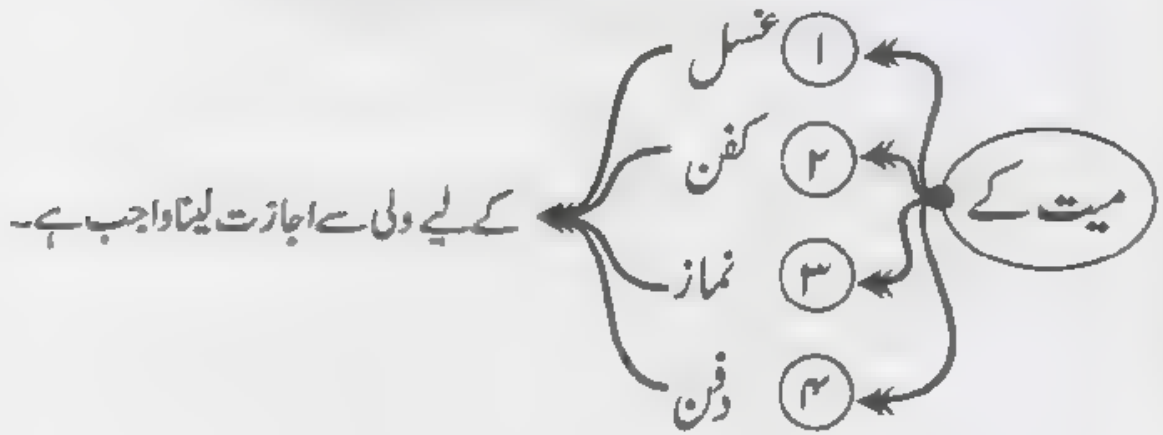 میت کے
۱ غسل
۲ کفن
۳ نماز
۴ دفن
کے لیے ولی سے اجازت لینا واجب ہے۔